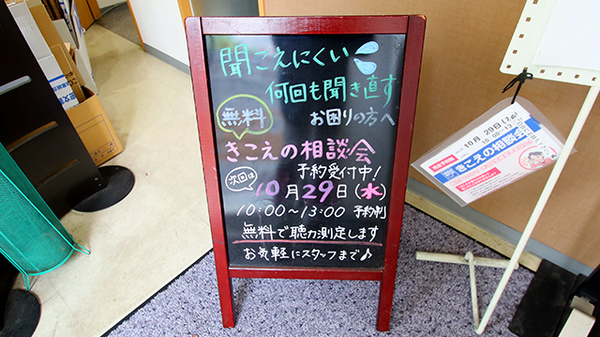 聞こえにくい
何回も聞き直す
無料
お困りの方へ
きこえの相談会
予約受付中!
次回は
10月29日(水)
10:00〜13:00 予約制
無料で聴力測定します
お気軽にスタッフまで♪
10月29日(水)
きこえの相談